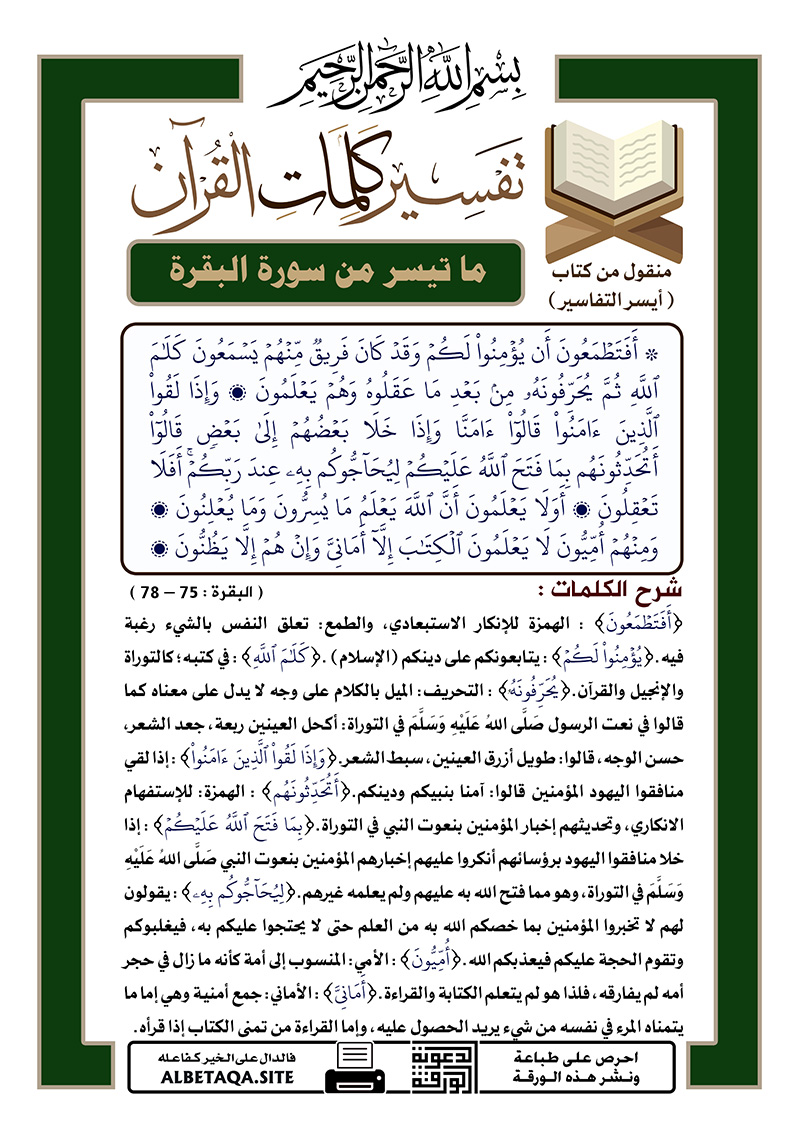 بِسْمِ اللَّهِ الرَّحْمَنِ الرَّحِيمِ
تفسير كلمات القرآن
منقول من كتاب
( أيسر التفاسير )
ما تيسر من سورة البقرة
۞ أَفَتَطۡمَعُونَ أَن يُؤۡمِنُواْ لَكُمۡ وَقَدۡ كَانَ فَرِيقٞ مِّنۡهُمۡ يَسۡمَعُونَ كَلَٰمَ
ٱللَّهِ ثُمَّ يُحَرِّفُونَهُۥ مِنۢ بَعۡدِ مَا عَقَلُوهُ وَهُمۡ يَعۡلَمُونَ ۝ وَإِذَا لَقُواْ
ٱلَّذِينَ ءَامَنُواْ قَالُوٓاْ ءَامَنَّا وَإِذَا خَلَا بَعۡضُهُمۡ إِلَىٰ بَعۡضٖ قَالُوٓاْ
أَتُحَدِّثُونَهُم بِمَا فَتَحَ ٱللَّهُ عَلَيۡكُمۡ لِيُحَآجُّوكُم بِهِۦ عِندَ رَبِّكُمۡۚ أَفَلَا
تَعۡقِلُونَ ۝ أَوَلَا يَعۡلَمُونَ أَنَّ ٱللَّهَ يَعۡلَمُ مَا يُسِرُّونَ وَمَا يُعۡلِنُونَ ۝
وَمِنۡهُمۡ أُمِّيُّونَ لَا يَعۡلَمُونَ ٱلۡكِتَٰبَ إِلَّآ أَمَانِيَّ وَإِنۡ هُمۡ إِلَّا يَظُنُّونَ ۝
شرح الكلمات : ( البقرة : 75 – 78 )
﴿أَفَتَطۡمَعُونَ﴾ : الهمزة للإنكار الاستبعادي، والطمع: تعلق النفس بالشيء رغبة
فيه.﴿يُؤۡمِنُواْ لَكُمۡ﴾ : يتابعونكم على دينكم (الإسلام) .﴿كَلَٰمَ ٱللَّهِ﴾ : في كتبه؛ كالتوراة
والإنجيل والقرآن.﴿يُحَرِّفُونَهُۥ﴾ : التحريف: الميل بالكلام على وجه لا يدل على معناه كما
قالوا في نعت الرسول صَلَّى اللهُ عَلَيْهِ وَسَلَّمَ في التوراة: أكحل العينين ربعة، جعد الشعر،
حسن الوجه ، قالوا: طويل أزرق العينين ، سبط الشعر.﴿وَإِذَا لَقُواْ ٱلَّذِينَ ءَامَنُواْ﴾ : إذا لقي
منافقوا اليهود المؤمنين قالوا: آمنا بنبيكم ودينكم.﴿أَتُحَدِّثُونَهُم﴾ : الهمزة: للإستفهام
الانكاري، وتحديثهم إخبار المؤمنين بنعوت النبي في التوراة.﴿بِمَا فَتَحَ ٱللَّهُ عَلَيۡكُمۡ﴾ : إذا
خلا منافقوا اليهود برؤسائهم أنكروا عليهم إخبارهم المؤمنين بنعوت النبي صَلَّى اللهُ عَلَيْهِ
وَسَلَّمَ في التوراة ، وهو مما فتح الله به عليهم ولم يعلمه غيرهم.﴿لِيُحَآجُّوكُم بِهِۦ﴾ : يقولون
لهم لا تخبروا المؤمنين بما خصكم الله به من العلم حتى لا يحتجوا عليكم به ، فيغلبوكم
وتقوم الحجة عليكم فيعذبكم الله .﴿أُمِّيُّونَ﴾ : الأمي: المنسوب إلى أمة كأنه ما زال في حجر
أمه لم يفارقه ، فلذا هو لم يتعلم الكتابة والقراءة.﴿أَمَانِيَّ﴾ : الأماني: جمع أمنية وهي إما ما
يتمناه المرء في نفسه من شيء يريد الحصول عليه ، وإما القراءة من تمنى الكتاب إذا قرأه .
احرص على طباعة
ونشر هذه الورقة
الدعوية الورقة
فالدال على الخير كفاعله
ALBETAQA.SITE